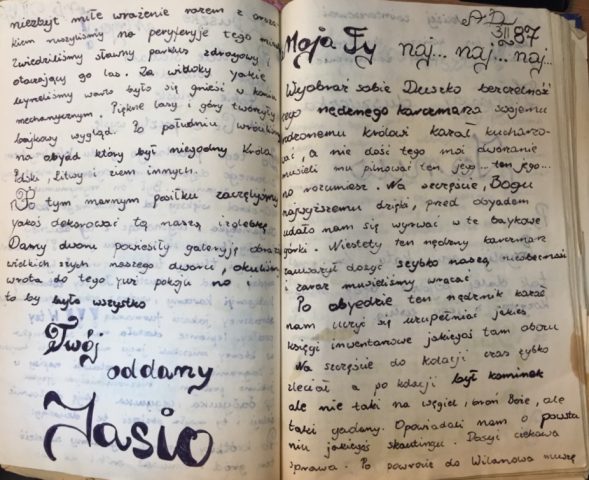 niezbyt miłe wrażenie razem z orsza-
kiem ruszyliśmy na peryferyje tego
Zwiedziliśmy sławny parkus zdrojowy i
otaczający go las. Za widoky jakie
warto było się gnieść w koniu
mechanicznym. Piękne lasy i góry tworzyły
bajkowy wygląd. Po południu wróciliśmy
na obyad który był niegodny Króla
Polski Litwy i ziem innych.
Po tym marnym posiłku zaczęliśmy
jakoś dekorować tą naszą izdebkę.
Damy dworu powiesiły galeryję obrazów
wielkich naszego dworu,
wrota do tego już pokoju no i
to by było wszystko
Twój
oddany
Jasio
A.D.
3 II 87
Moja Ty naj... naj... naj...
Wyobraź sobie Duszko bezczelność
tego nędznego karczmarza swojemu
królowi karał kucharzo-
wać, a nie dość tego moi dworzanie
musieli mu pilnować ten jego... ten jego...
no rozumiesz. Na szczęście, Bogu
najwyższemu dzięki, przed obyadem
udało nam się wyrwać w te baykowe
górki. Niestety ten nędzny karczmarz
zauważył dosyć szybko naszą nieobecność
i zaraz musieliśmy wracać
Po obyedzie ten nędznik kazał
nam uczyć się uzupełniać jakieś
księgi inwentarzowe jakiegoś tam obozu
Na szczęście do kolacji czas szybko
zleciał a po kolacji był kominek
ale nie taki na węgiel, broń Boże, ale
taki gadany. Opowiadali nam o powsta
niu jakiegoś skautingu. Dosyć ciekawa
sprawa. Po powrocie do Wilanowa muszę